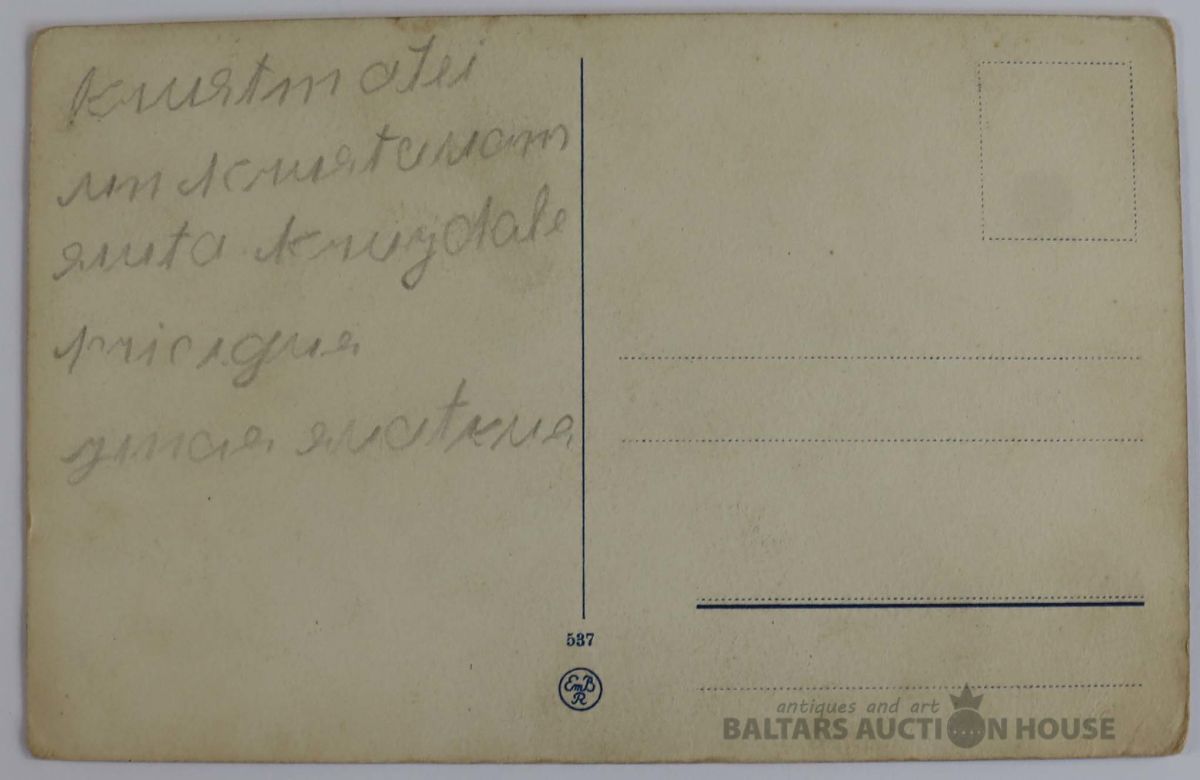 Krustm atei
un krustevam
suta kruzdale
pricigus
zimas svatkus
537
EmBR
antiques and art
BALTARS AUCTION HOUSE